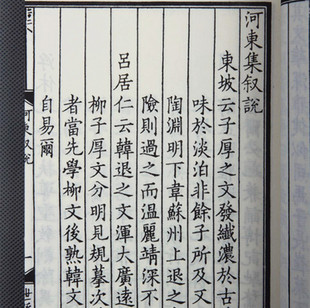 河東集叙說
東坡云子厚之文發纖濃於古
味於淡泊非餘子所及又
陶淵明下韋蘇州上退之
險則過之而温麗靖深不
呂居仁云韓退之文渾大廣遠
柳子厚文分明見規摹次
者當先學柳文後熟韓文
自易爾
河東叙說